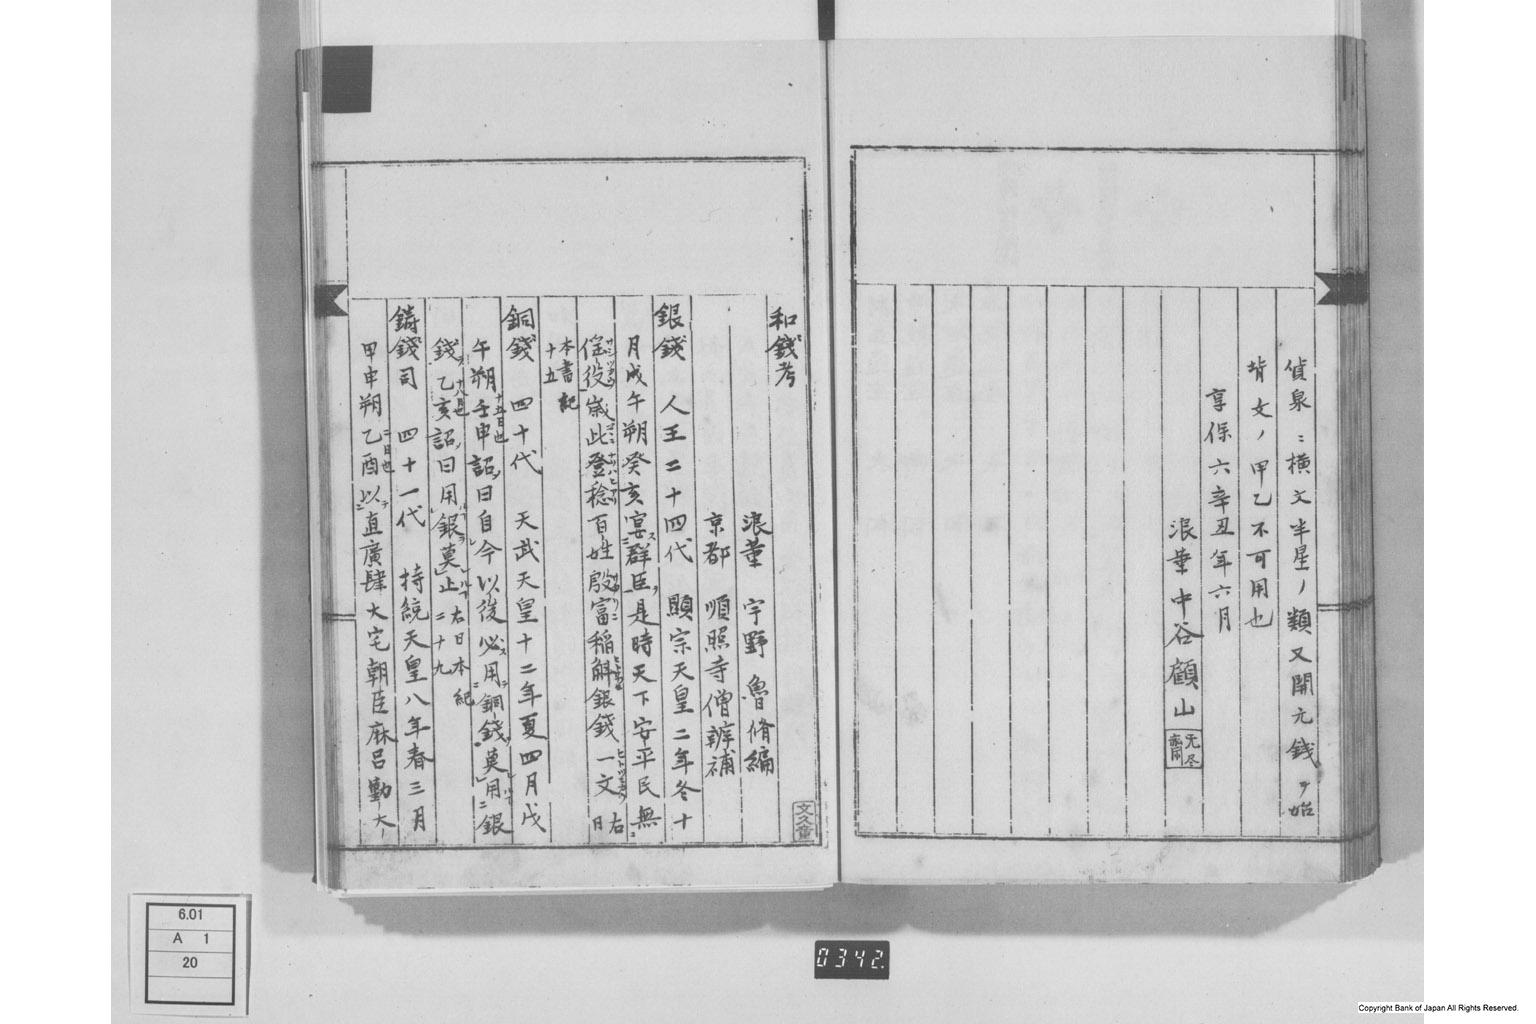 貨泉ニ横文半星ノ類又開元錢ヲ始
背文ノ甲乙不可用也
享保六辛丑年六月
浪華中谷顧山
和錢考
浪華 宇野魯脩編
京都 順照寺僧辨補
銀錢 人王二十四代 顯宗天皇二年冬十
月戊午朔癸亥宴群臣是時天下安平民無
徭役歳此登稔百姓殷富稲斛銀錢一文 右日
本書紀十五
銅錢 四十代 天武天皇十二年夏四月戊
午朔壬申十五日也詔曰自今以後必用銅錢莫用銀
錢乙亥十八日也詔曰用銀莫止 右日本紀二十九
鑄錢司 四十一代 持統天皇八年春三月
甲申朔乙酉二日也以直廣肆大宅朝臣麻呂勤大
文久童
6.01
A 1
20
0342.
Copyright Bank of Japan All Rights Reserved.